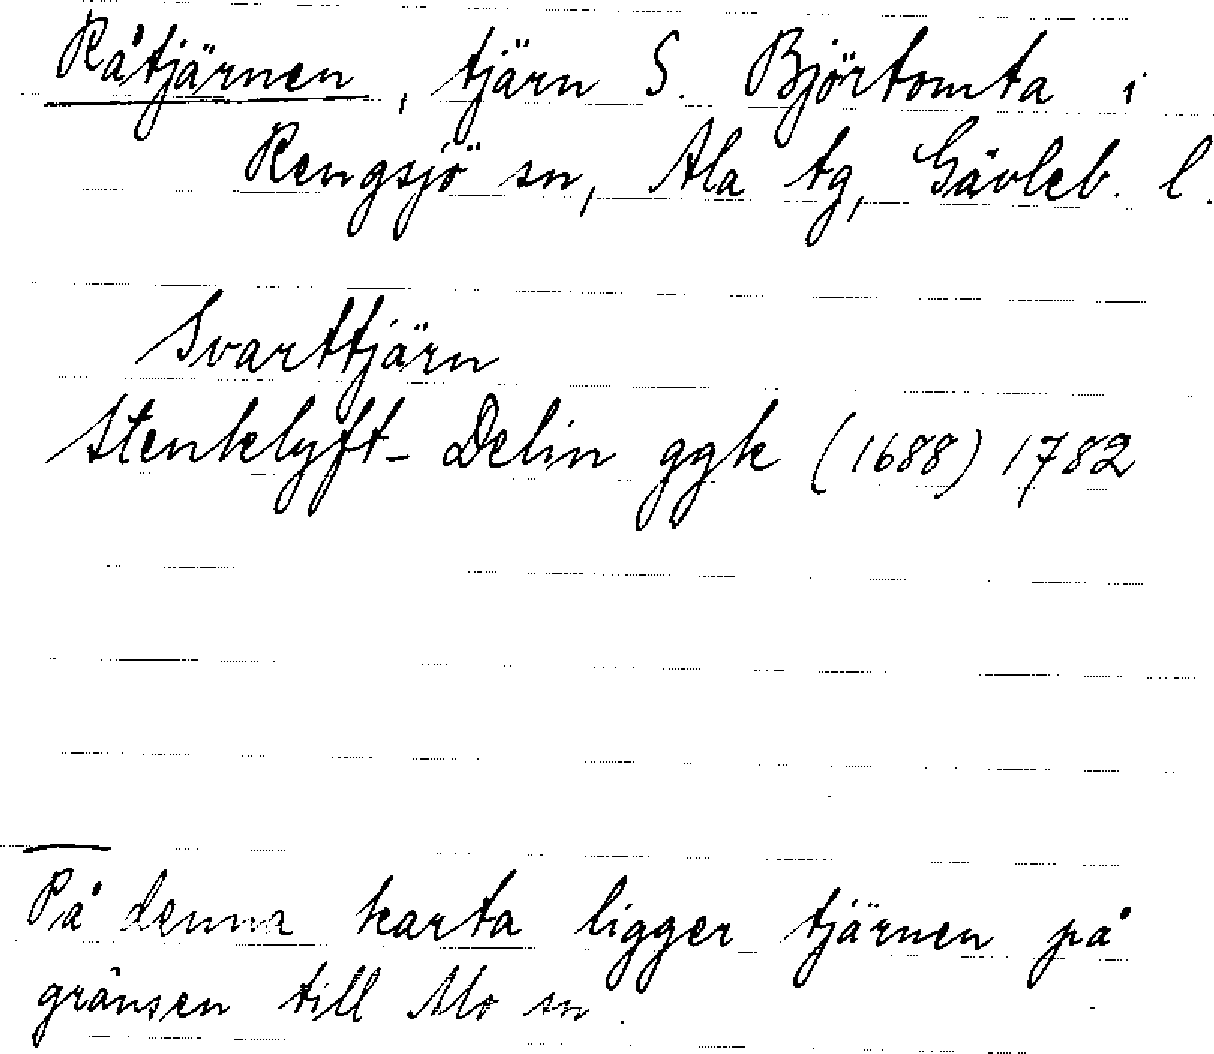 Råtjärnen, tjärn S. Björtomta i
Rengsjö sn, Ala tg, Gävleb. l.
Svarttjärn
Stenklyft- Delin ggk (1688) 1782
På denna karta ligger tjärnen på
gränsen till Mo sn.